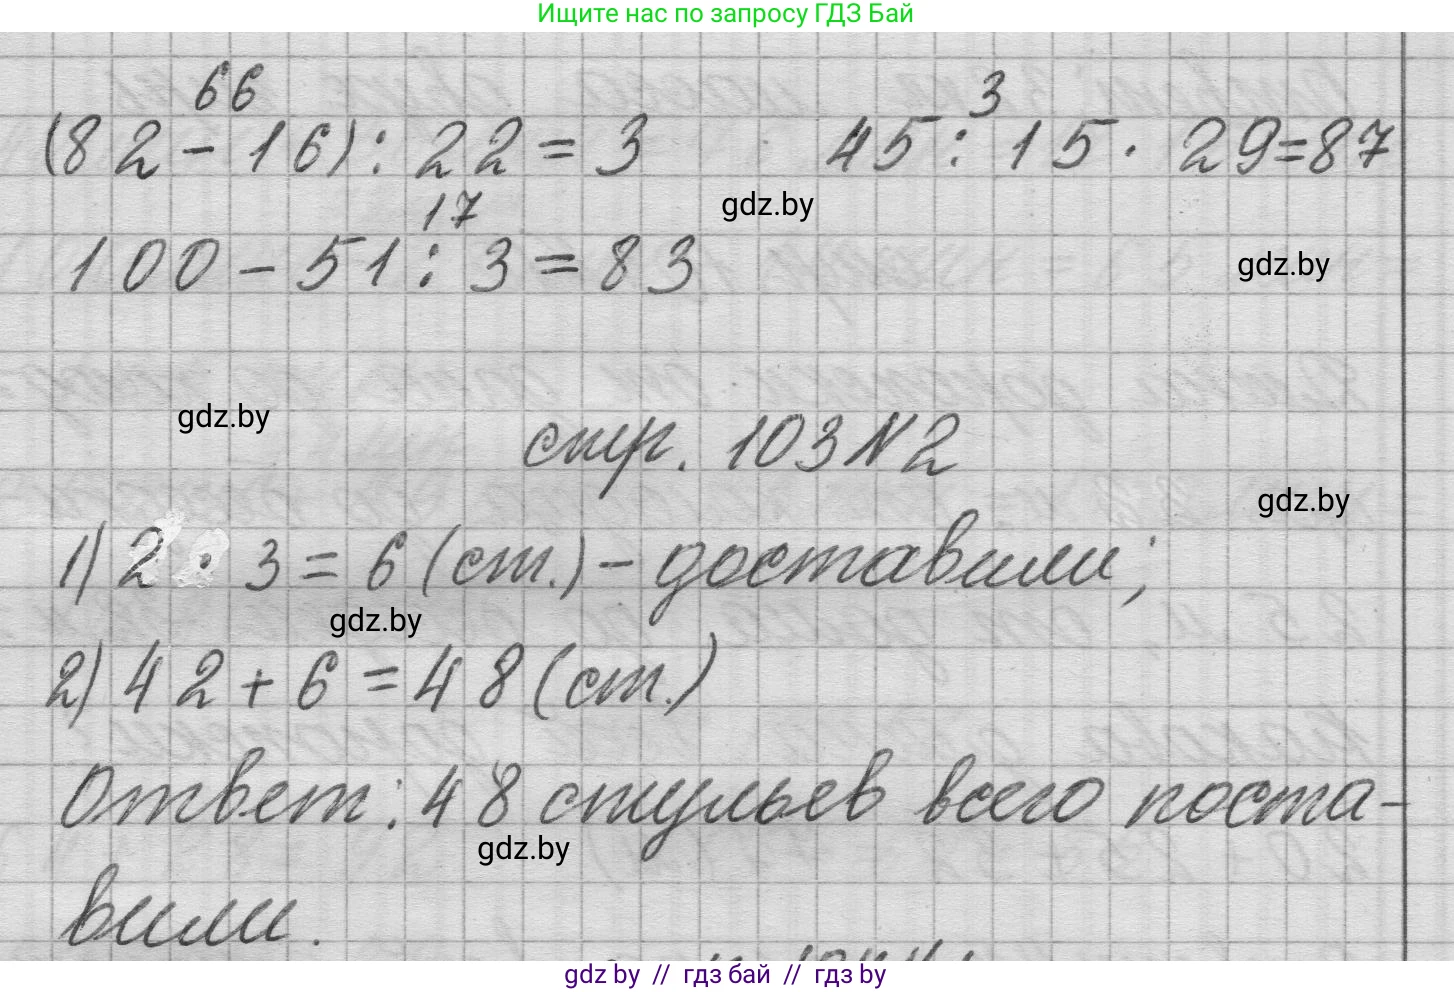 Ищите нас по запросу ГДЗ Бай
66 3
(82-16):22=3 45:15·29=87
gdz.by
17
100-51:3=83
gdz.by
gdz.by
стр. 103 N2
gdz.by
1) 2·3=6 (ст.) – доставили;
gdz.by
2) 42+6=48 (ст.)
Ответ: 48 стульев всего поста-
gdz.by
вили.
gdz by // гдз бай // гдз by